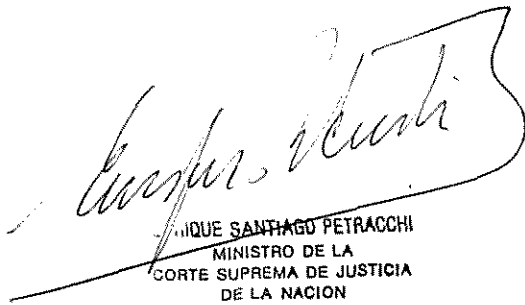 IQUE SANTIAGO PETRACCHI
MINISTRO DE LA
CORTE SUPREMA DE JUSTICIA
DE LA NACION